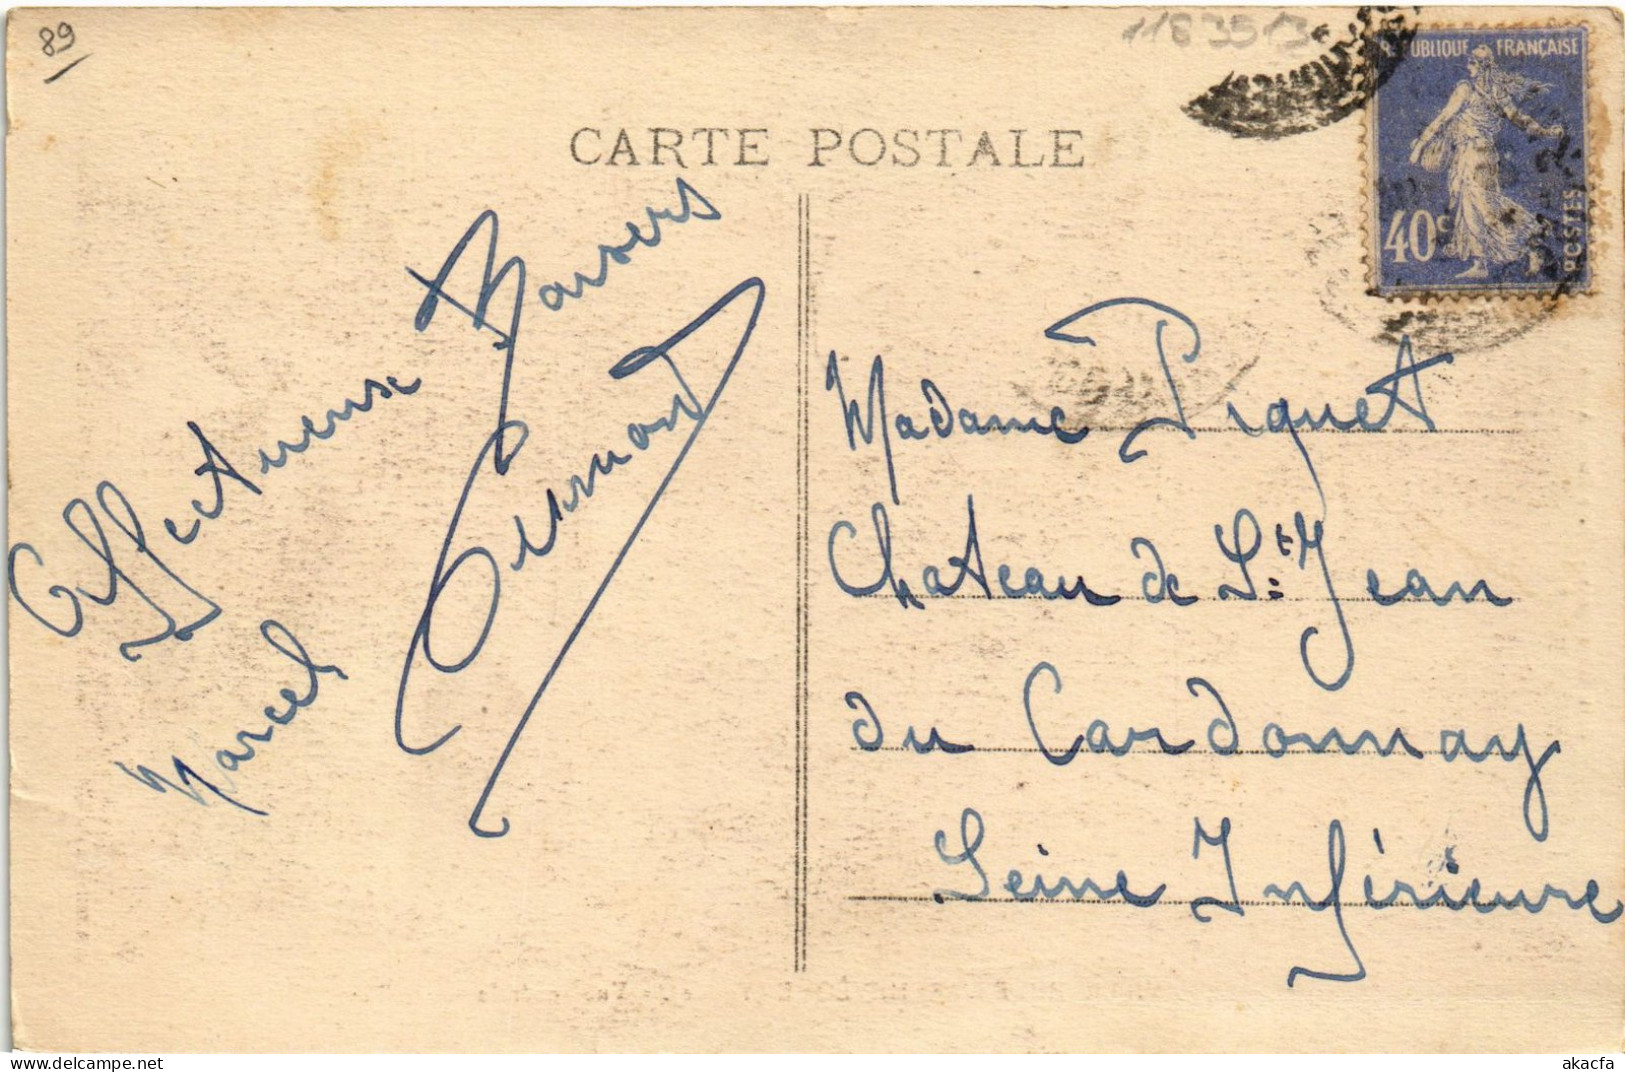 89
1183513
CARTE POSTALE
RÉPUBLIQUE FRANÇAISE
40c
POSTES
Affectueux Baisers
Marcel
Madame Piquet
Chateau de St: Jean
du Cardonnay
Seine Inférieure
akacfa
delcampe.net